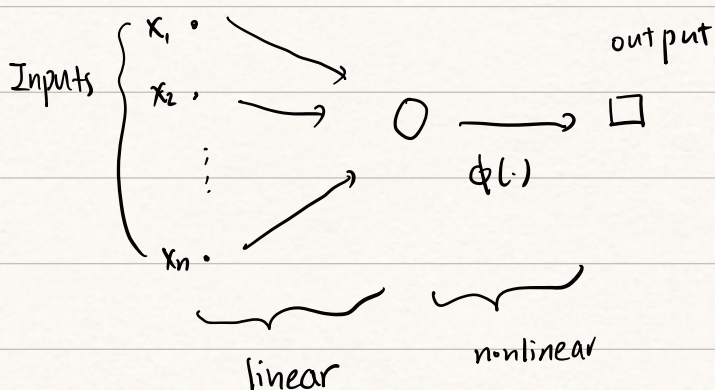 Inputs
x₁
x₂
⋮
xₙ
output
ϕ(·)
linear
nonlinear